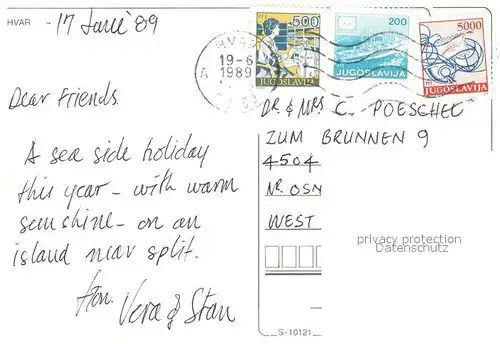 HVAR
17 June '89
Dear Friends
A sea side holiday
this year - with warm
sunshine - on an
island near split.
from
Vera & Stan
HVAR
19-6
1989
A
PTT 500
JUGOSLAVIJA
200
JUGOSLAVIJA
5000
PTT JUGOSLAVIJA
DR. & MRS C. POESCHEL
ZUM BRUNNEN 9
4504
NR. OSN
WEST
privacy protection
Datenschutz
S-10121